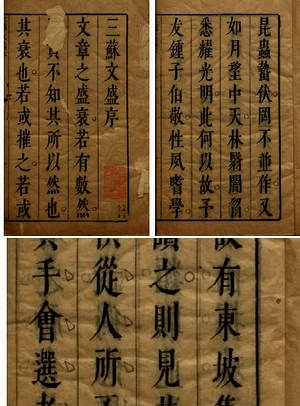 三蘇文盛序
文章之盛衰若有數然
不知其所以然也
其衰也若或摧之若或
昆蟲蟄伏罔不並作又
如月望中天林翳闇曶
悉耀光明此何以故予
友鍾子伯敬性夙嗜學
有東坡
之則見
從人所
手會選